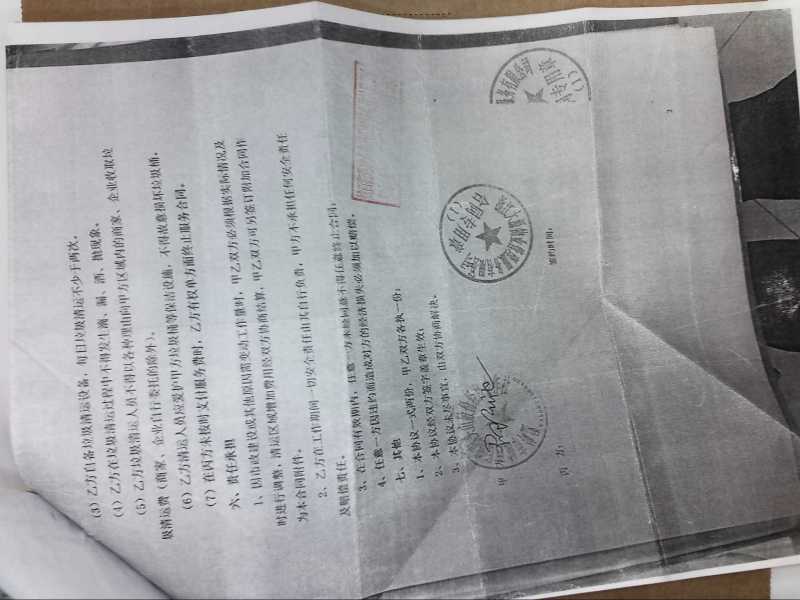 (3) 乙方自备垃圾清运设备，每日垃圾清运不少于两次。
(4) 乙方在垃圾清运过程中不得发生滴、漏、洒、抛现象。
(5) 乙方垃圾清运人员不得以各种理由向甲方区域内的商家、企业收取垃
圾清运费（商家、企业自行委托的除外）。
(6) 乙方清运人员应爱护甲方垃圾桶等保洁设施，不得故意损坏垃圾桶。
(7) 在丙方未按时支付服务费时，乙方有权单方面终止服务合同。
六、责任承担
1、因市政建设或其他原因需变动工作量时，甲乙双方必须根据实际情况及
时进行调整，清运区域增加费用经双方协商结算，甲乙双方可另签订附加合同作
为本合同附件。
2、乙方在工作期间一切安全责任由其自行负责，甲方不承担任何安全责任
及赔偿责任。
3、在合同有效期内，任意一方未经同意不得任意终止合同；
4、任意一方因违约而造成对方的经济损失必须加以赔偿。
七、其他
1、本协议一式两份，甲乙双方各执一份；
2、本协议经双方签字盖章生效；
3、本协议未尽事宜，由双方协商解决。
甲
丙方：
签约时间：
合同专用章
(1)
服务有限公司
专用章
(1)
2